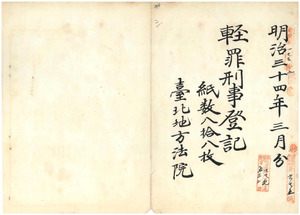 明治三十四年三月分
軽罪刑事登記
紙数八拾八枚
臺北地方法院